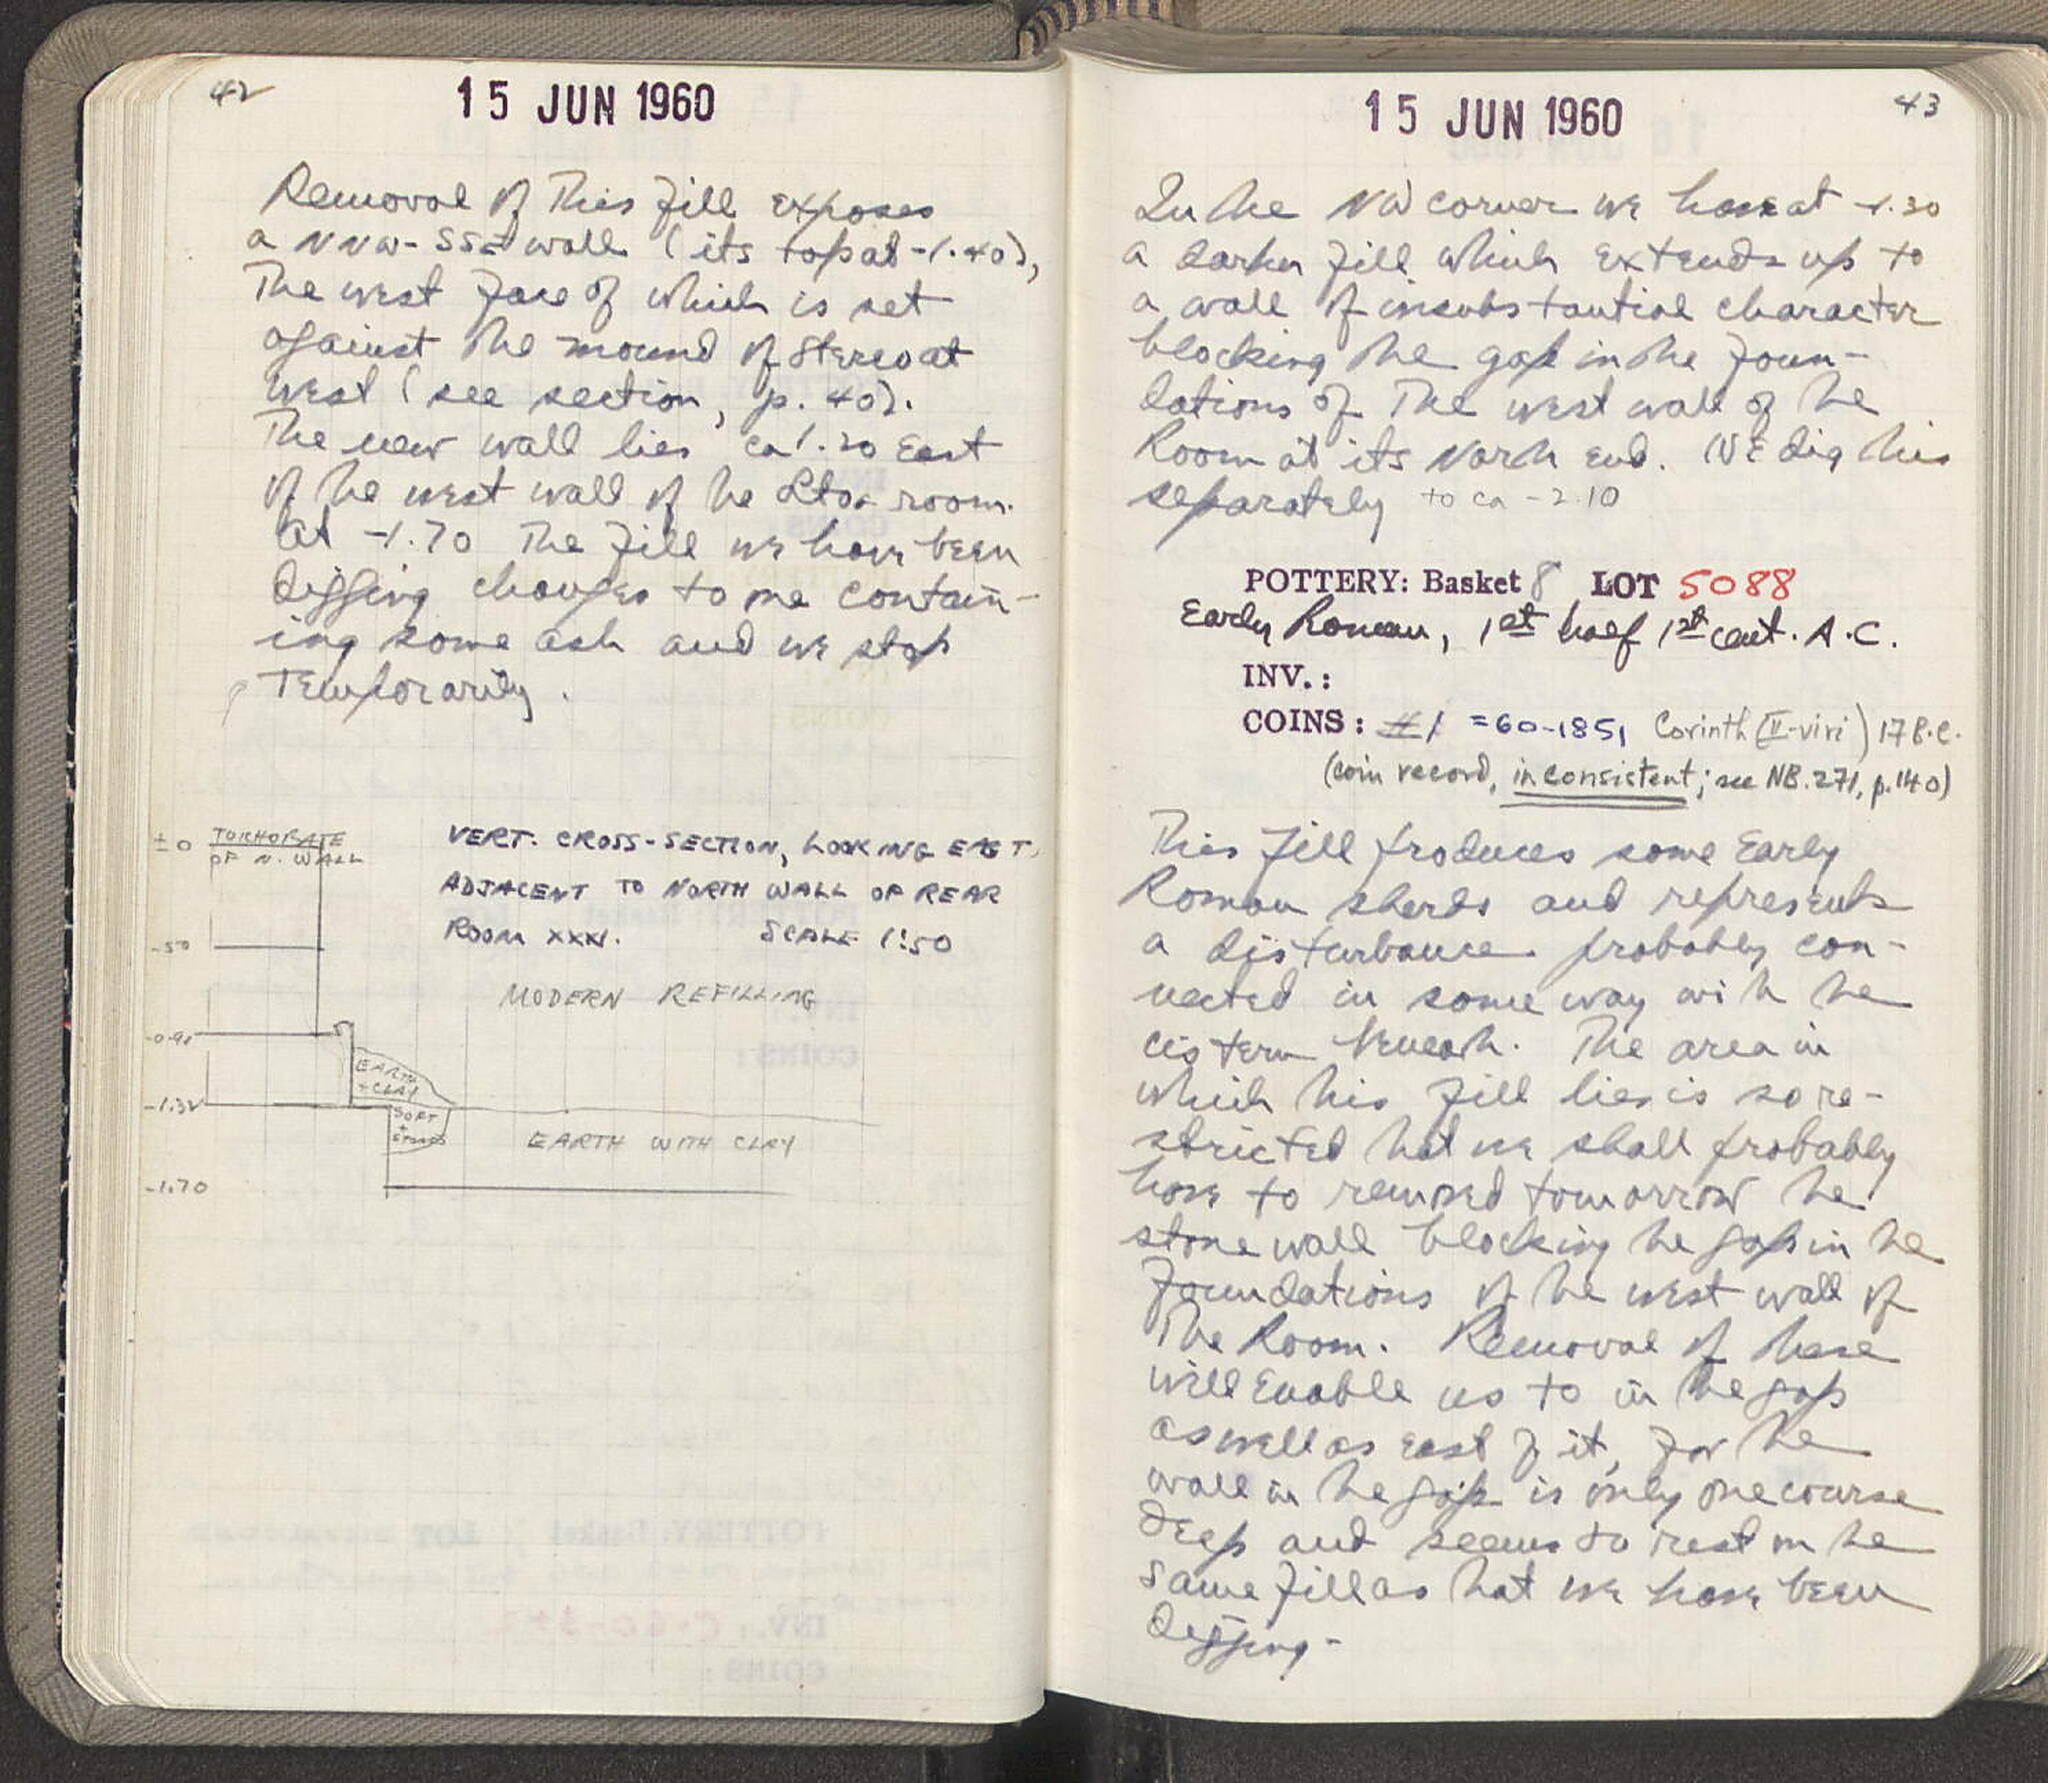 42
15 JUN 1960
Removal of this fill exposes
a NNW-SSE wall (its top at -1.40),
the west face of which is set
against the mound of stereo at
west (see section, p. 40).
The new wall lies ca 1.20 East
of the west wall of the Stoa room.
At -1.70 the fill we have been
digging changes to one contain-
ing some ash and we stop
temporarily.
± 0 TOICHOBATE
OF N. WALL
VERT. CROSS-SECTION, LOOKING EAST,
ADJACENT TO NORTH WALL OF REAR
ROOM XXXI. SCALE 1:50
-50
MODERN REFILLING
EARTH
+ CLAY
-1.32
SOFT
+
STONES
EARTH WITH CLAY
-1.70
43
15 JUN 1960
In the NW corner we have at -1.30
a darker fill which extends up to
a wall of insubstantial character
blocking the gap in the foun-
dations of the west wall of the
Room at its North end. We dig this
separately to ca -2.10
POTTERY: Basket 8 LOT 5088
Early Roman, 1st half 1st cent. A.C.
INV.:
COINS: #1 = 60-1851 Corinth (II-viri) 17 B.C.
(coin record, inconsistent; see NB. 271, p. 140)
This fill produces some Early
Roman sherds and represents
a disturbance probably con-
nected in some way with the
cistern beneath. The area in
which this fill lies is so re-
stricted that we shall probably
have to removed tomorrow the
stone wall blocking the gap in the
foundations of the west wall of
the Room. Removal of these
will enable us to in the gap
as well as east of it, for the
wall in the gap is only one course
deep and seems to rest on the
same fill as that we have been
digging-